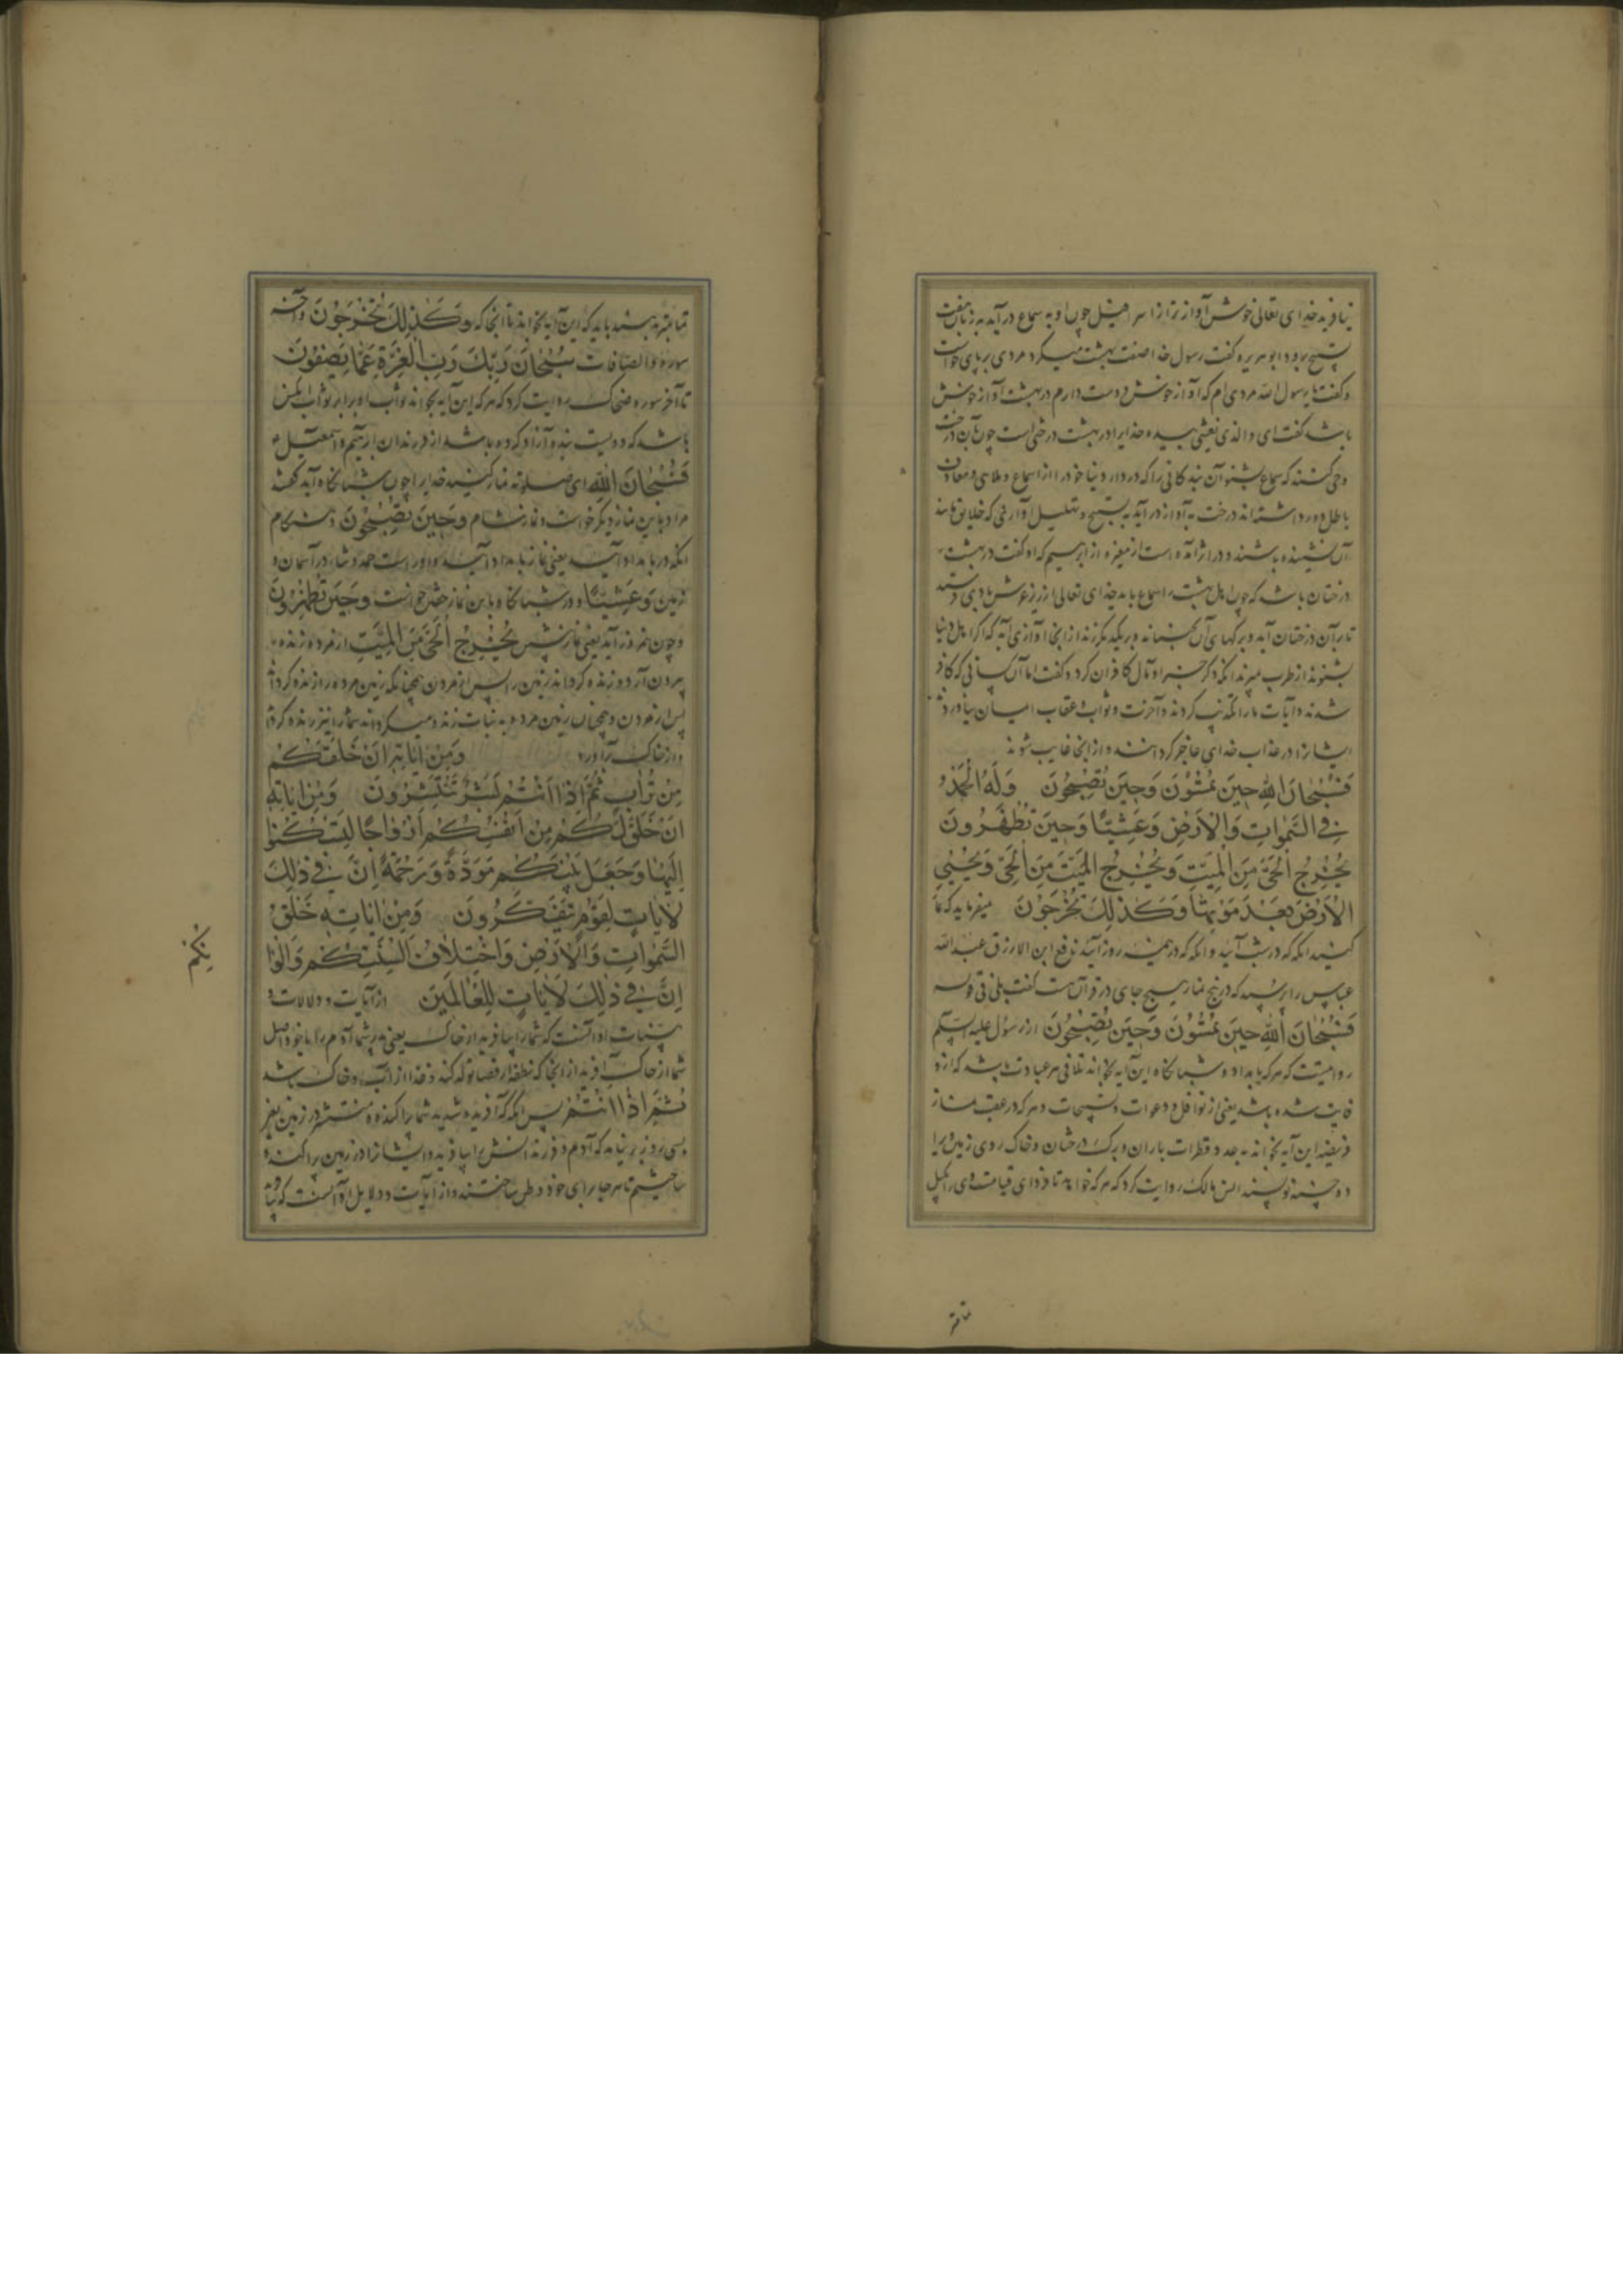 نیافرید خدای تعالی خوش آواز تر از اسرافیل چون او به سماع درآید بر زبان هفت
تسبیح برود ابو هریره گفت رسول خدا صفت بهشت میکرد مردی بر پای خواست
و گفت یا رسول الله مردی ام که آواز خوش دوست دارم در بهشت آواز خوش
باشد گفت ای والذی نفسی بیده خدایرا در بهشت درختی است چون بآن درخت
وحی کنند که سماع بشنوان بندگانی را که در دار دنیا خود را از اسماع و ملاهی و معازف
باطل دور داشته اند درخت به آواز درآید به تسبیح و تهلیل آوازی که خلایق مانند
آن نشنیده باشند و در اثر آمده است از مغیره از ابرهیم که او گفت در بهشت
درختان باشد که چون اهل بهشت را سماع باید خدای تعالی از زیر عرش بادی فرستد
تا بر آن درختان آید و برگهای آن بجنباند و بر یکدیگر زند از آنجا آوازی آید که اگر اهل دنیا
بشنوند از طرب میرند آنگه ذکر جزا و مآل کافران کرد و گفت اما آن کسانی که کافر
شدند و آیات ما را تکذیب کردند و آخرت و ثواب و عقاب ایمان نیاوردند
ایشانرا در عذاب خدای حاضر کردانند و از آنجا غایب نشوند
فَسُبْحَانَ اللَّهِ حِينَ تُمْسُونَ وَحِينَ تُصْبِحُونَ وَلَهُ الْحَمْدُ
فِي السَّمٰوَاتِ وَالْاَرْضِ وَعَشِيًّا وَحِينَ تُظْهِرُونَ
يُخْرِجُ الْحَيَّ مِنَ الْمَيِّتِ وَيُخْرِجُ الْمَيِّتَ مِنَ الْحَيِّ وَيُحْيِي
الْاَرْضَ بَعْدَ مَوْتِهَا وَكَذٰلِكَ تُخْرَجُونَ میفرماید که نماز
کنید آنگه که در شب آیید و آنگه که در روز آیید نافع ابن الازرق عبدالله
عباس را پرسید که در پنج نماز هیچ جای در قرآن هست گفت بلی فی قوله
فَسُبْحَانَ اللَّهِ حِينَ تُمْسُونَ وَحِينَ تُصْبِحُونَ از رسول علیه السلم
روایتست که هر که بامداد و شبانگاه این آیه بخواند تلافی هر عبادت باشد که ازو
فایت شده باشد یعنی از نوافل و دعوات و تسبیحات و هر که در عقب نماز
فریضه این آیه بخواند به عدد قطرات باران و برگ درختان و خاک روی زمین او را
حسنه نویسند انس مالک روایت کرد که هر که خواهد تا فردای قیامت وی را بکیل
تمامتر
تمامتر بدهند باید که این آیه بخواند تا آنجا که وَكَذٰلِكَ تُخْرَجُونَ و آخر
سوره والصافات سُبْحَانَ رَبِّكَ رَبِّ الْعِزَّةِ عَمَّا يَصِفُونَ
تا آخر سوره ضحاک روایت کرد که هر که این آیه بخواند ثواب او برابر ثواب آنکس
باشد که دویست بنده آزاد کرده باشد از فرزندان ابرهیم و اسمعیل
فَسُبْحَانَ اللَّهِ ای صلو لله نماز کنید خدایرا چون شبانگاه آید گفتند
مراد باین نماز دیگر خواست و نماز شام وَحِينَ تُصْبِحُونَ و هنگام
آنکه در بامداد آیید یعنی نماز بامداد و او راست حمد و ثنا در آسمان و
زمین وَعَشِيًّا و در شبانگاه و باین نماز خفتن خواست وَحِينَ تُظْهِرُونَ
و چون نیمروز آید یعنی نماز پیشین يُخْرِجُ الْحَيَّ مِنَ الْمَيِّتِ از مرده زنده
بیرون آرد و زنده کرداند زمین را پس از مردن همچنانکه زمین مرده را زنده کرداند
پس از مردن و همچنان زمین مرده به نبات زنده میکرداند شما را نیز زنده کرداند
و از خاک برآورد وَمِنْ اٰيَاتِهِ اَنْ خَلَقَكُمْ
مِنْ تُرَابٍ ثُمَّ اِذَا اَنْتُمْ بَشَرٌ تَنْتَشِرُونَ وَمِنْ اٰيَاتِهِ
اَنْ خَلَقَ لَكُمْ مِنْ اَنْفُسِكُمْ اَزْوَاجًا لِتَسْكُنُوا
اِلَيْهَا وَجَعَلَ بَيْنَكُمْ مَوَدَّةً وَرَحْمَةً اِنَّ فِي ذٰلِكَ
لَاٰيَاتٍ لِقَوْمٍ يَتَفَكَّرُونَ وَمِنْ اٰيَاتِهِ خَلْقُ
السَّمٰوَاتِ وَالْاَرْضِ وَاخْتِلَافُ اَلْسِنَتِكُمْ وَاَلْوَا
نِكُمْ
اِنَّ فِي ذٰلِكَ لَاٰيَاتٍ لِلْعَالَمِينَ از آیات و دلالات و
بینات او آنست که شما را بیافرید از خاک یعنی پدر شما آدم را یا خود اصل
شما از خاک آفرید از آنجا که نطفه از فضا تولد کند و غذا از آب و خاک باشد
ثُمَّ اِذَا اَنْتُمْ پس آنگه که آفریده شدید شما پراکنده و منتشر در زمین یعنی
بسی روز بر نیامد که آدم و فرزندانش را بیافرید و ایشانرا در زمین پراکنده
ساختیم تا هر جا برای خود وطن ساختند و از آیات و دلایل او آنست که بیافرید